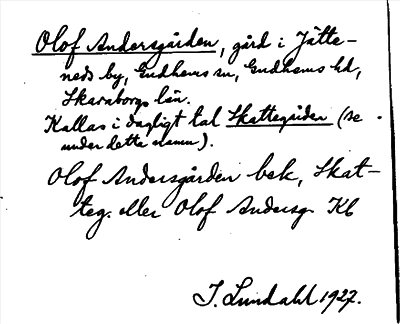 Olof Andersgården, gård i Jätte-
neds by, Gudhems sn, Gudhems hd,
Skaraborgs län.
Kallas i dagligt tal Skattegården (se
under detta namn).
Olof Andersgården bek, Skat-
teg. eller Olof Andersg. Kb
J. Lundahl 1927.